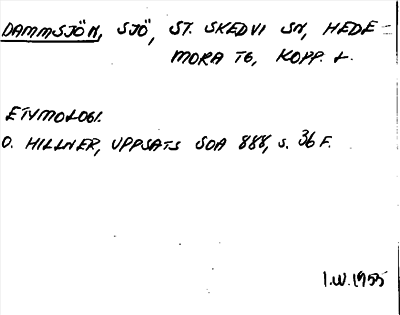 DAMMSJÖN, SJÖ, ST. SKEDVI SN, HEDE=
MORA TG, KOPP. L.
ETYMOLOGI.
O. HILLNER, UPPSATS SOA 888, S. 36 F.
I.W. 1955